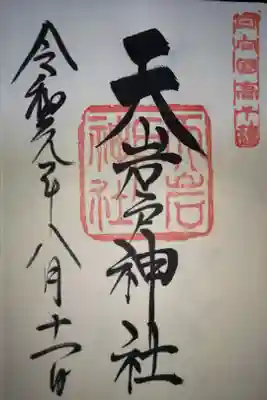 日向国高千穂
天岩戸神社
天岩戸神社
令和元年八月十一日